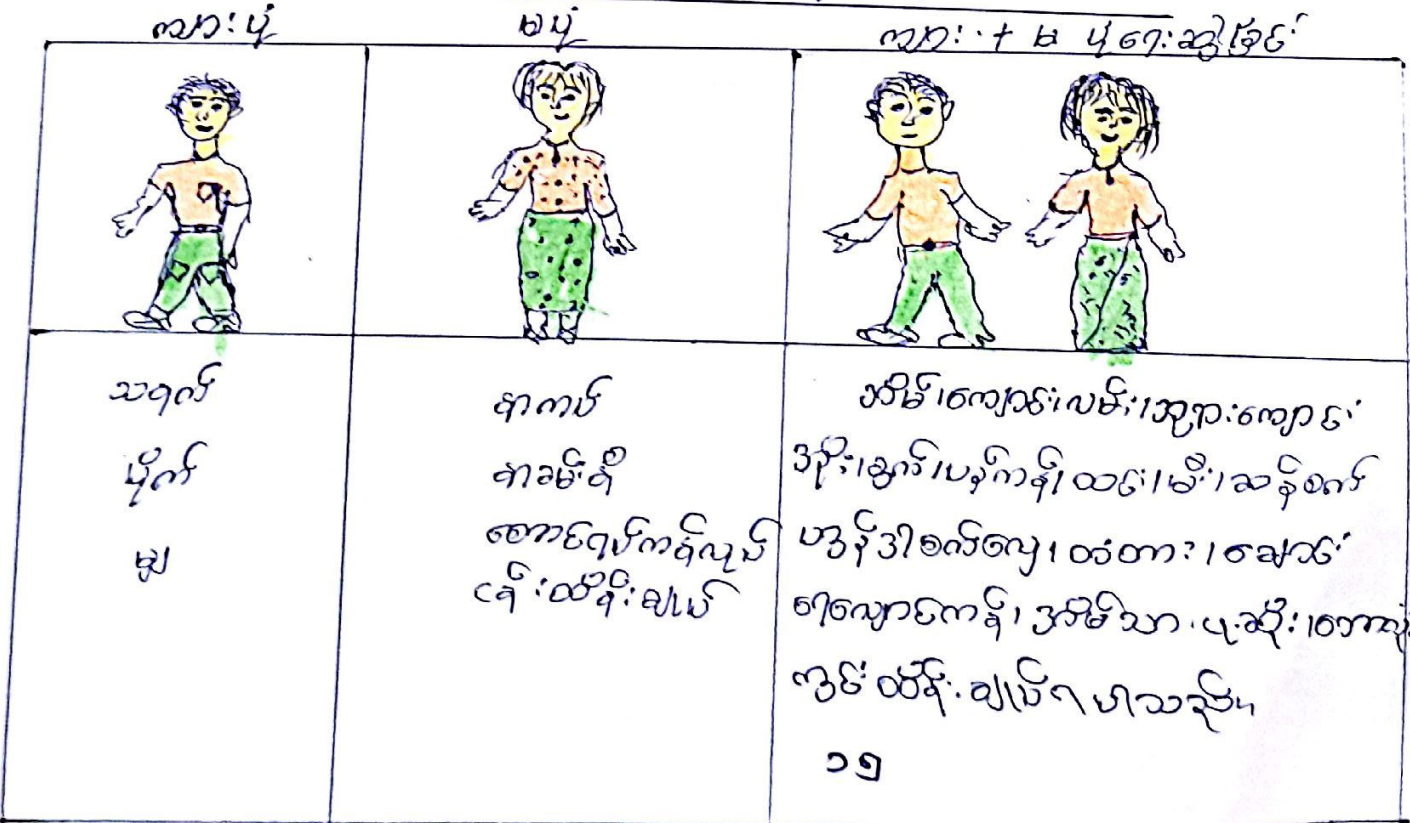 ကျားပုံ
မပုံ
ကျား + မ ပုံရေးဆွဲခြင်း
သရက်
ပိုက်
မျှ
နာကပ်
နာခမ်းစီ
တောင်ရပ်ကန်လုပ်
ငန်းထိန်းချုပ်
အိမ်၊ကျောင်း၊လမ်း၊ဘုရားကျောင်း
အိုး၊ခွက်၊ပန်ကန်၊ထင်း၊မီး၊ဆန်စက်
ဟွန်ဒါစက်လှေ၊တံတား၊ချောင်း
ရေလျှောင်ကန်၊အိမ်သာ၊ပုဆိုး၊ဘောလုံး
ကွင်းထိန်းချုပ်ရပါသည်။
၁၅